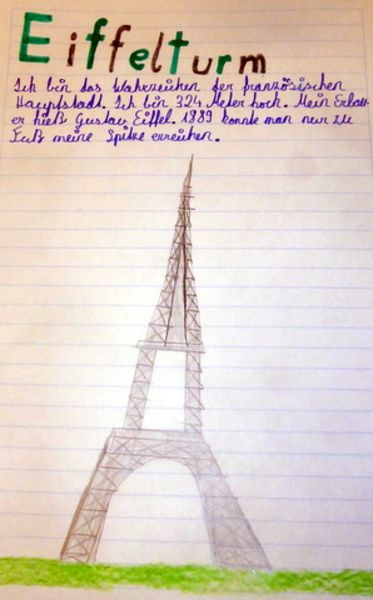 Eiffelturm
Ich bin das Wahrzeichen der französischen
Hauptstadt. Ich bin 324 Meter hoch. Mein Erbau-
er hieß Gustav Eiffel. 1989 konnte man nur zu
Fuß meine Spitze erreichen.